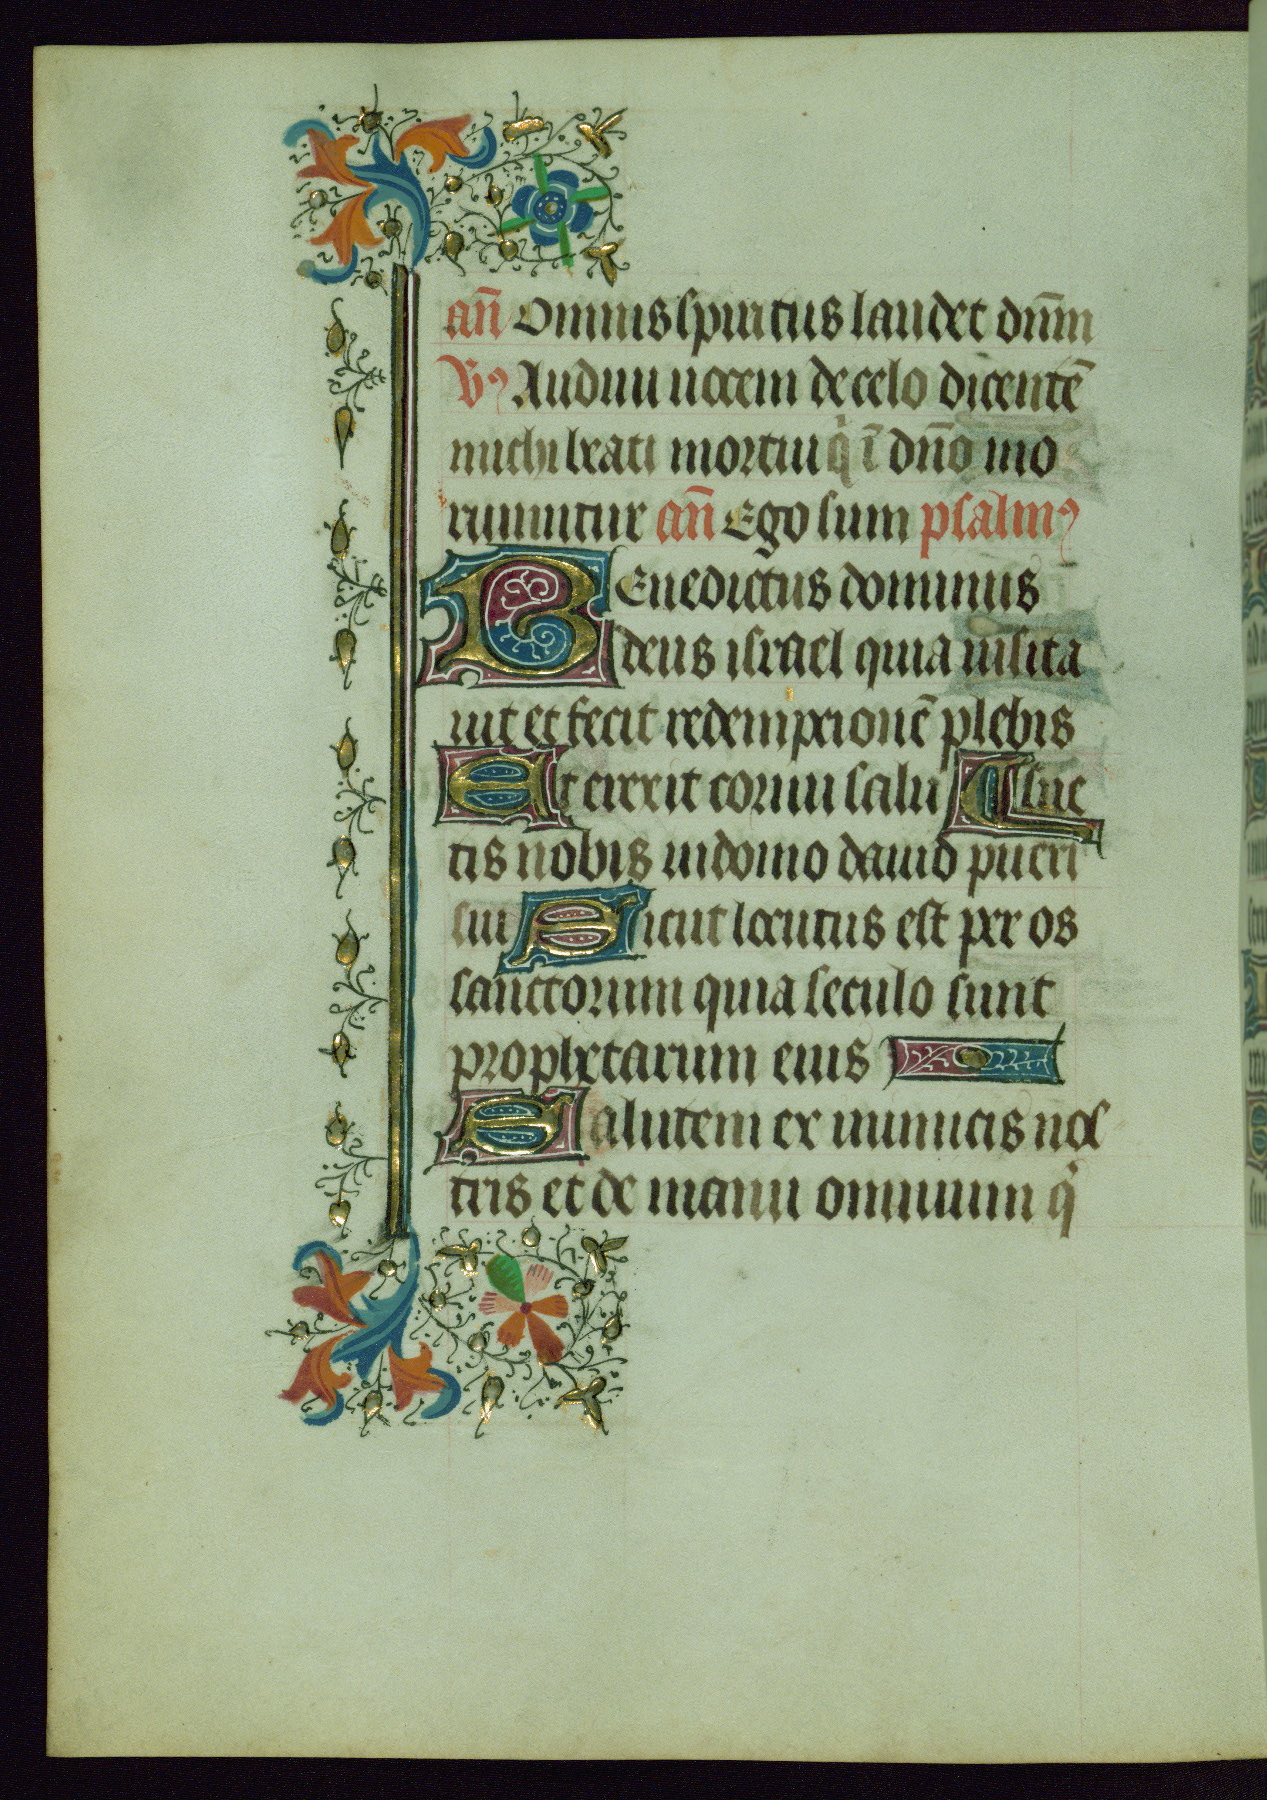 an̄ Omnis spiritus laudet dn̄m
V9 Audiui uocem de celo dicentē
michi beati mortui q̇ ī dn̄o mo
riuntur an̄ Ego sum psalm9
BEnedictus dominus
deus israel quia uisita
uit et fecit redempcionē plebis
Et erexit cornu salu sue
tis nobis in domo dauid pueri
sui Sicut locutus est per os
sanctorum qui a seculo sunt
prophetarum eius
Salutem ex inimicis nos
tris et de manu omnium q̇